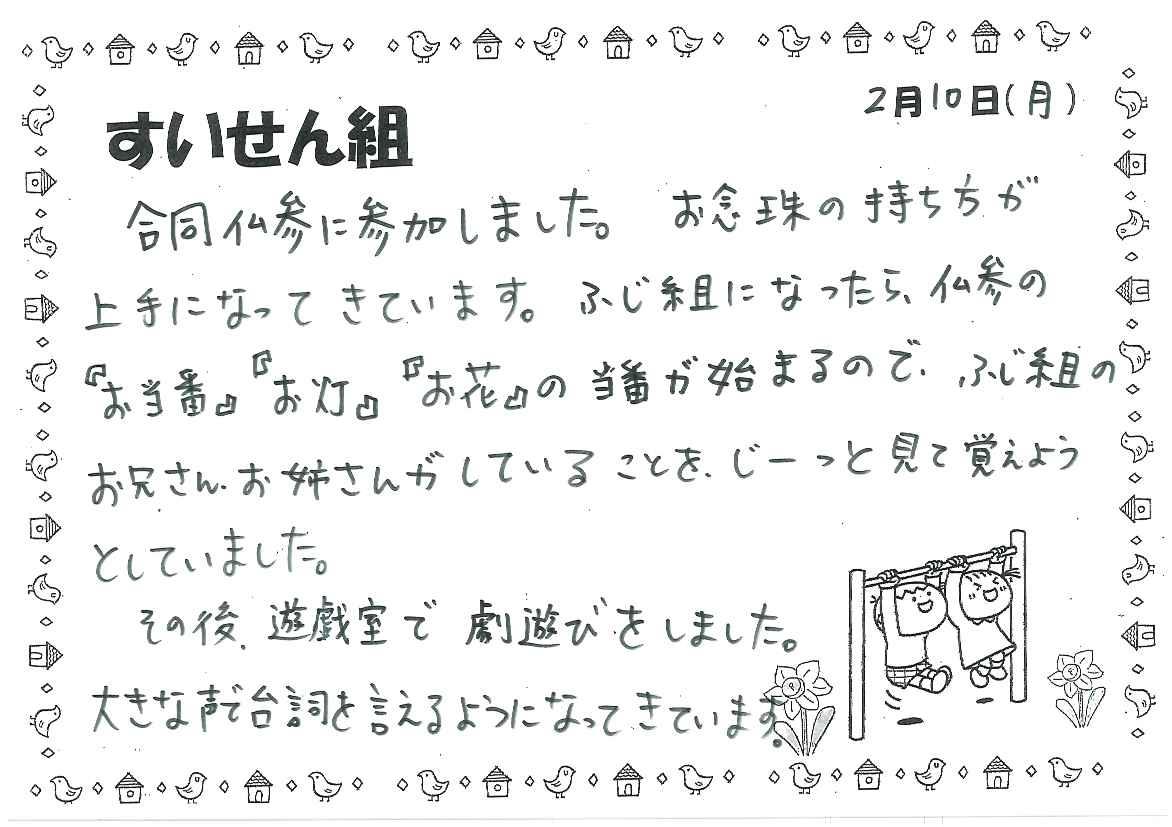 2月10日(月)
すいせん組
合同仏参に参加しました。 お念珠の持ち方が
上手になってきています。ふじ組になったら、仏参の
『お当番』『お灯』『お花』の当番が始まるので、ふじ組の
お兄さん、お姉さんがしていることを、じーっと見て覚えよう
としていました。
その後、遊戯室で劇遊びをしました。
大きな声で台詞を言えるようになってきています。